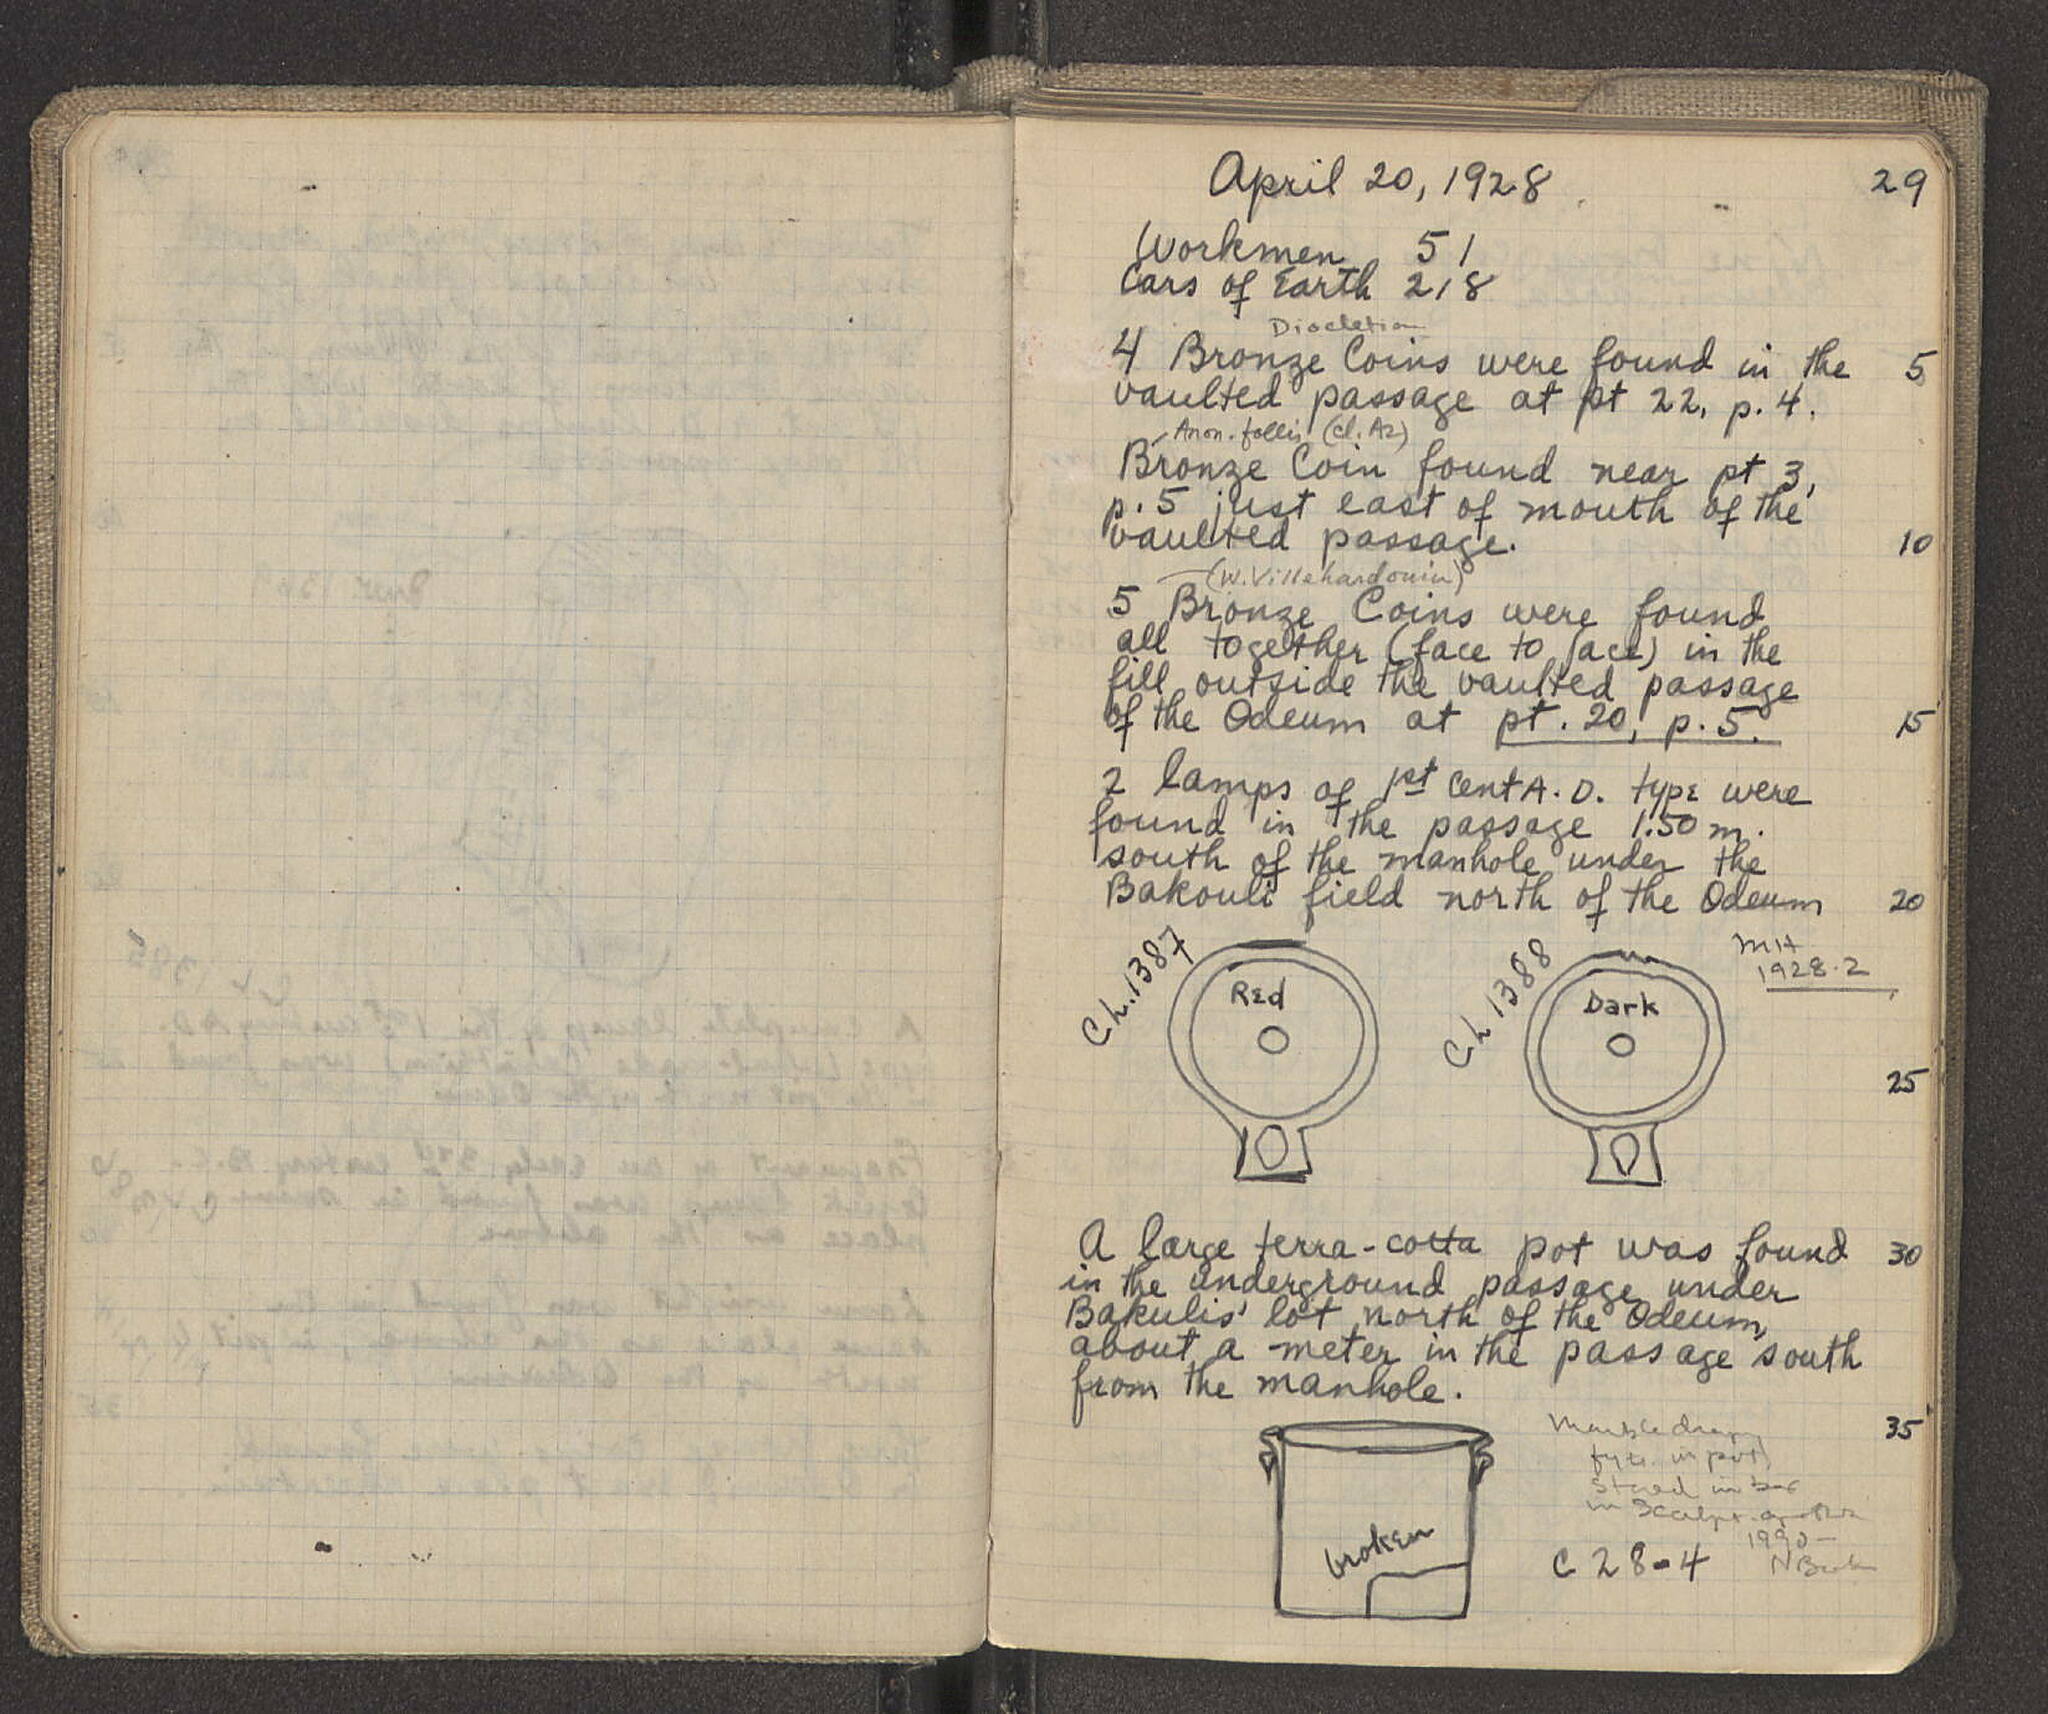 April 20, 1928
29
Workmen 51
Cars of Earth 218
Diocletian
4 Bronze Coins were found in the
5
vaulted passage at pt 22, p. 4.
Anon. follis (Cl. A2)
Bronze Coin found near pt 3,
p. 5 just east of mouth of the
vaulted passage.
10
(W. Villehardouin)
5 Bronze Coins were found
all together (face to face) in the
fill outside the vaulted passage
of the Odeum at pt. 20, p. 5.
15
2 lamps of 1st Cent A. D. type were
found in the passage 1.50 m.
south of the manhole under the
Bakouli field north of the Odeum
20
Ch. 1387
Red
Ch 1388
Dark
MH
1928.2
25
A large terra-cotta pot was found
30
in the underground passage under
Bakulis' lot north of the Odeum,
about a meter in the passage south
from the manhole.
35
Marble
in pot)
Stored in
in Sculpt.
1990 –
N
broken
C 28-4